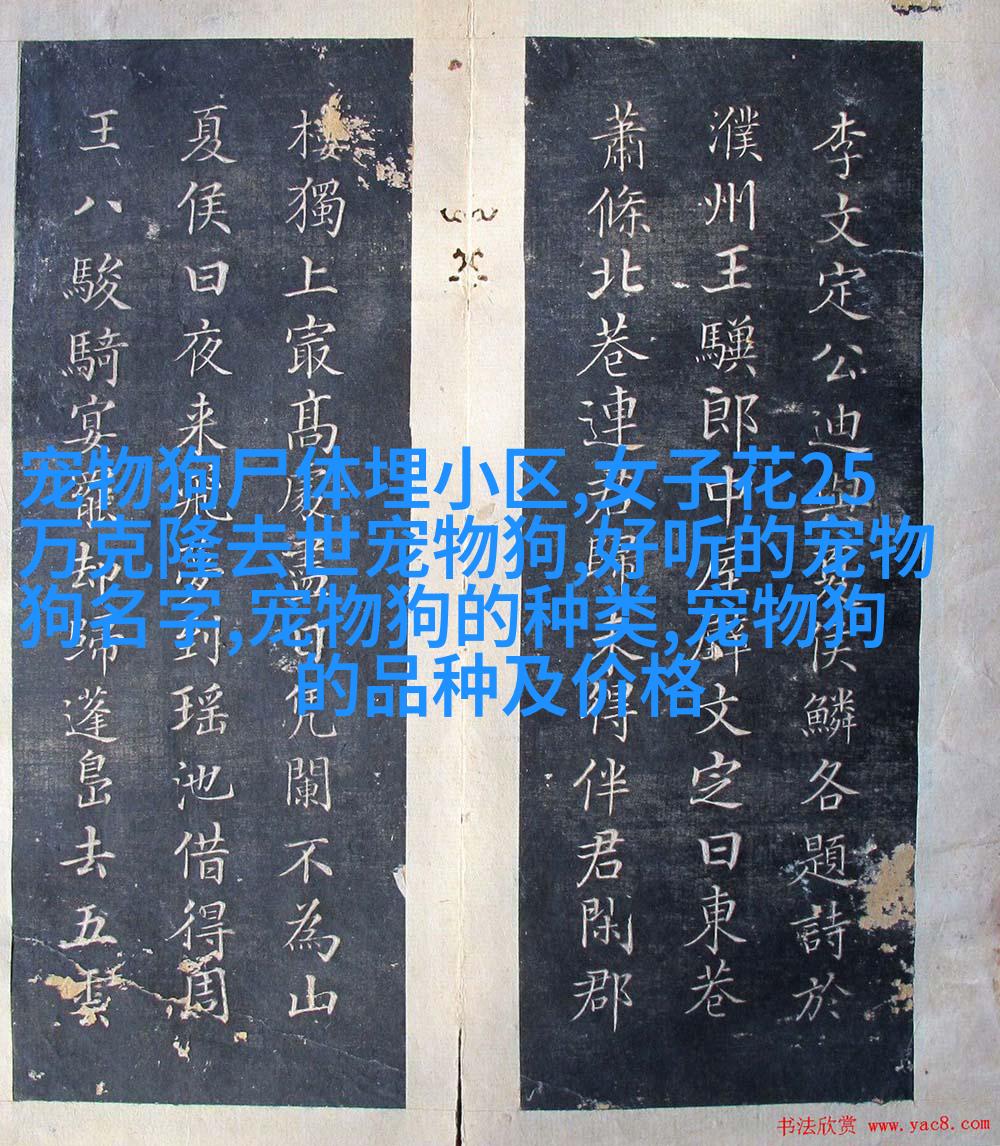 李文定公迪侯鱗各題詩於
濮州王郎中屋壁文定曰東巷
蕭條北巷連君歸未得伴君閑郡
樓獨上㝡高處盡日凭闌不為山
夏侯曰夜来魂夢到瑶池借得周
王八駿騎宴罷却歸蓬島去五雲
宠物狗尸体埋小区,女子花25
万克隆去世宠物狗,好听的宠物
狗名字,宠物狗的种类,宠物狗
的品种及价格
书法欣赏 www.yac8.com